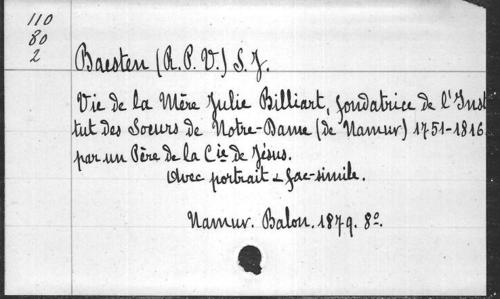 110
80
2
Baesten (R. P. V.) S. J.
Vie de la Mère Julie Billiart, fondatrice de l'Inst
tut des Soeurs de Notre-Dame (de Namur) 1751-1816
par un Père de la Cie de Jésus.
Avec portrait & fac-simile.
Namur. Balon. 1879. 8o.